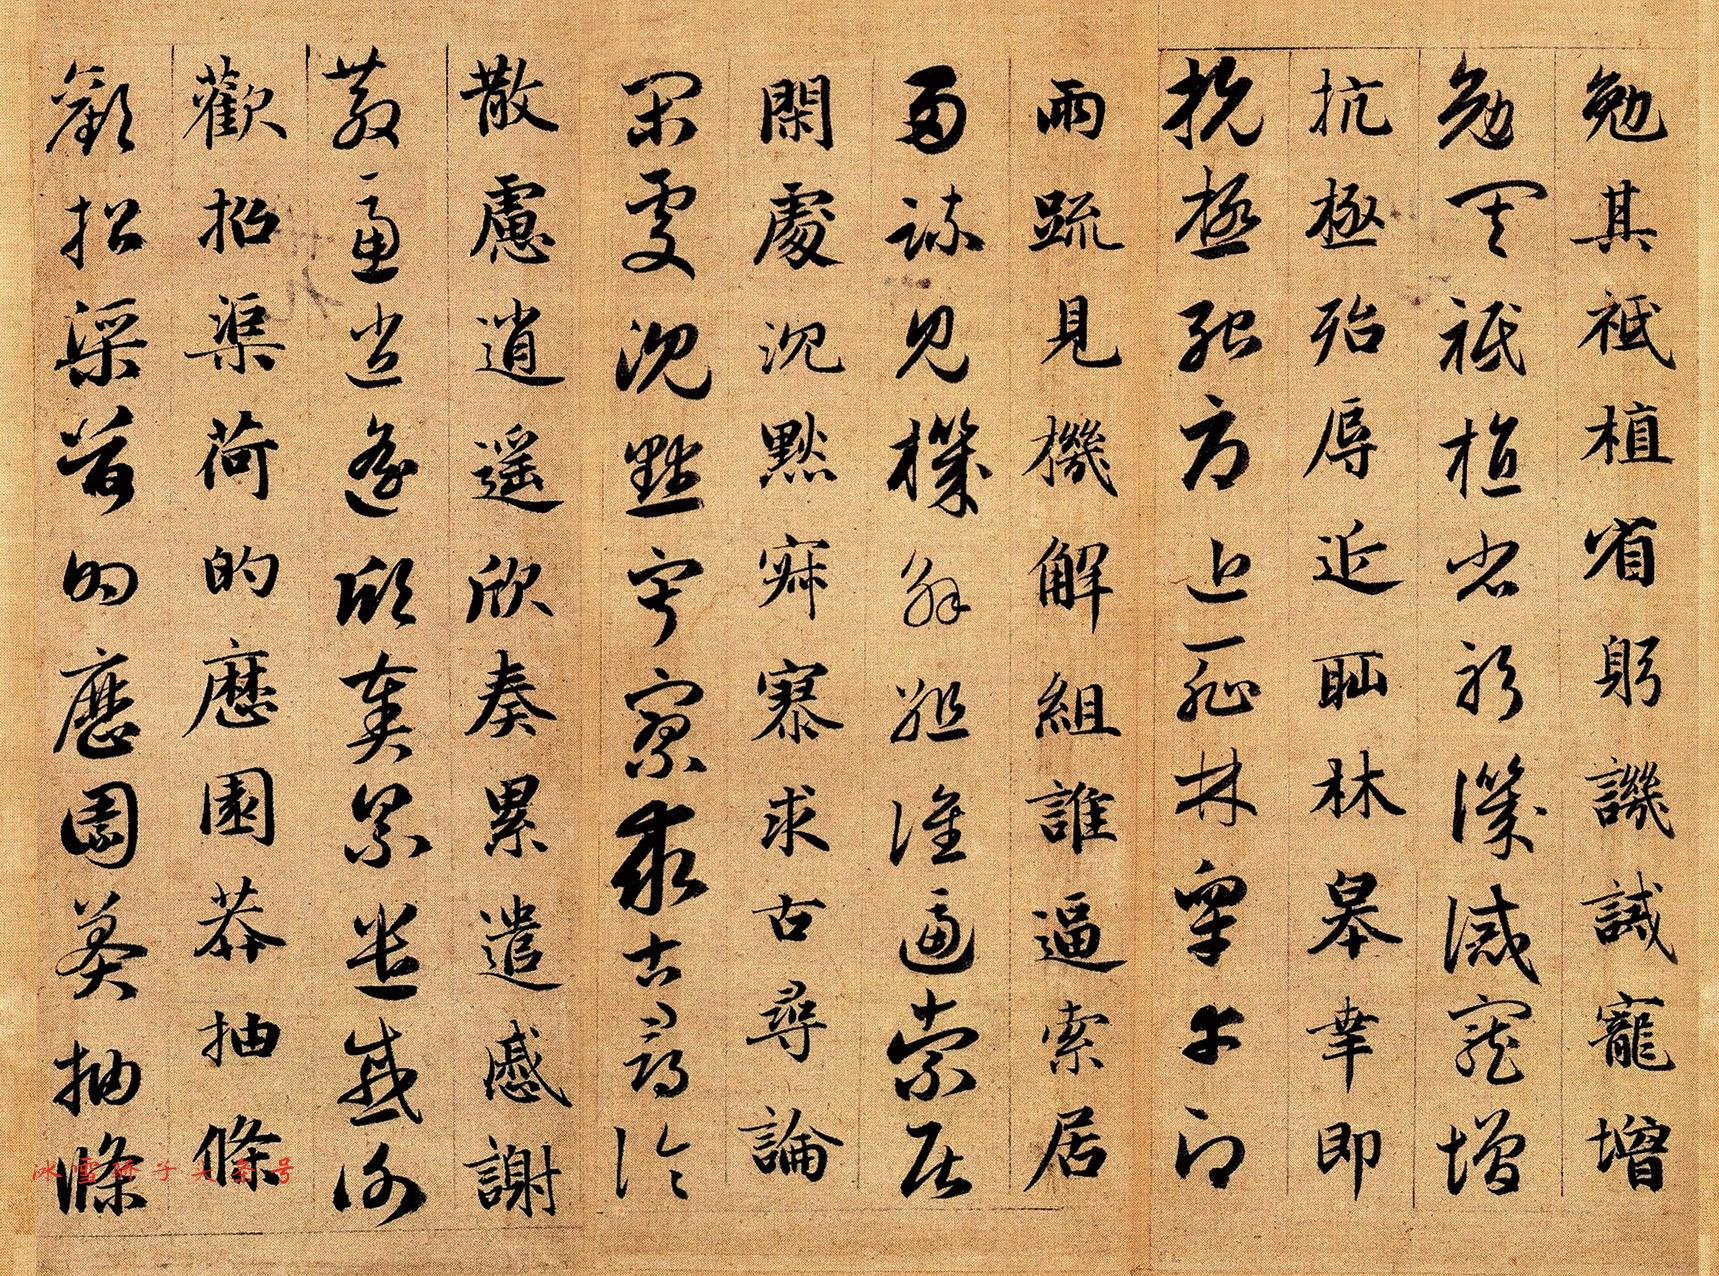 勉其祗植省躬譏誡寵增
勉其祗植省躬譏誡寵增
抗極殆辱近耻林皋幸即
抗極殆辱近耻林皋幸即
兩疏見機解組誰逼索居
兩疏見機解組誰逼索居
閑處沉默寂寥求古尋論
閑處沉默寂寥求古尋論
散慮逍遥欣奏累遣慼謝
散慮逍遥欣奏累遣慼謝
歡招渠荷的歷園莽抽條
歡招渠荷的歷園莽抽條
冰雪骄子头条号